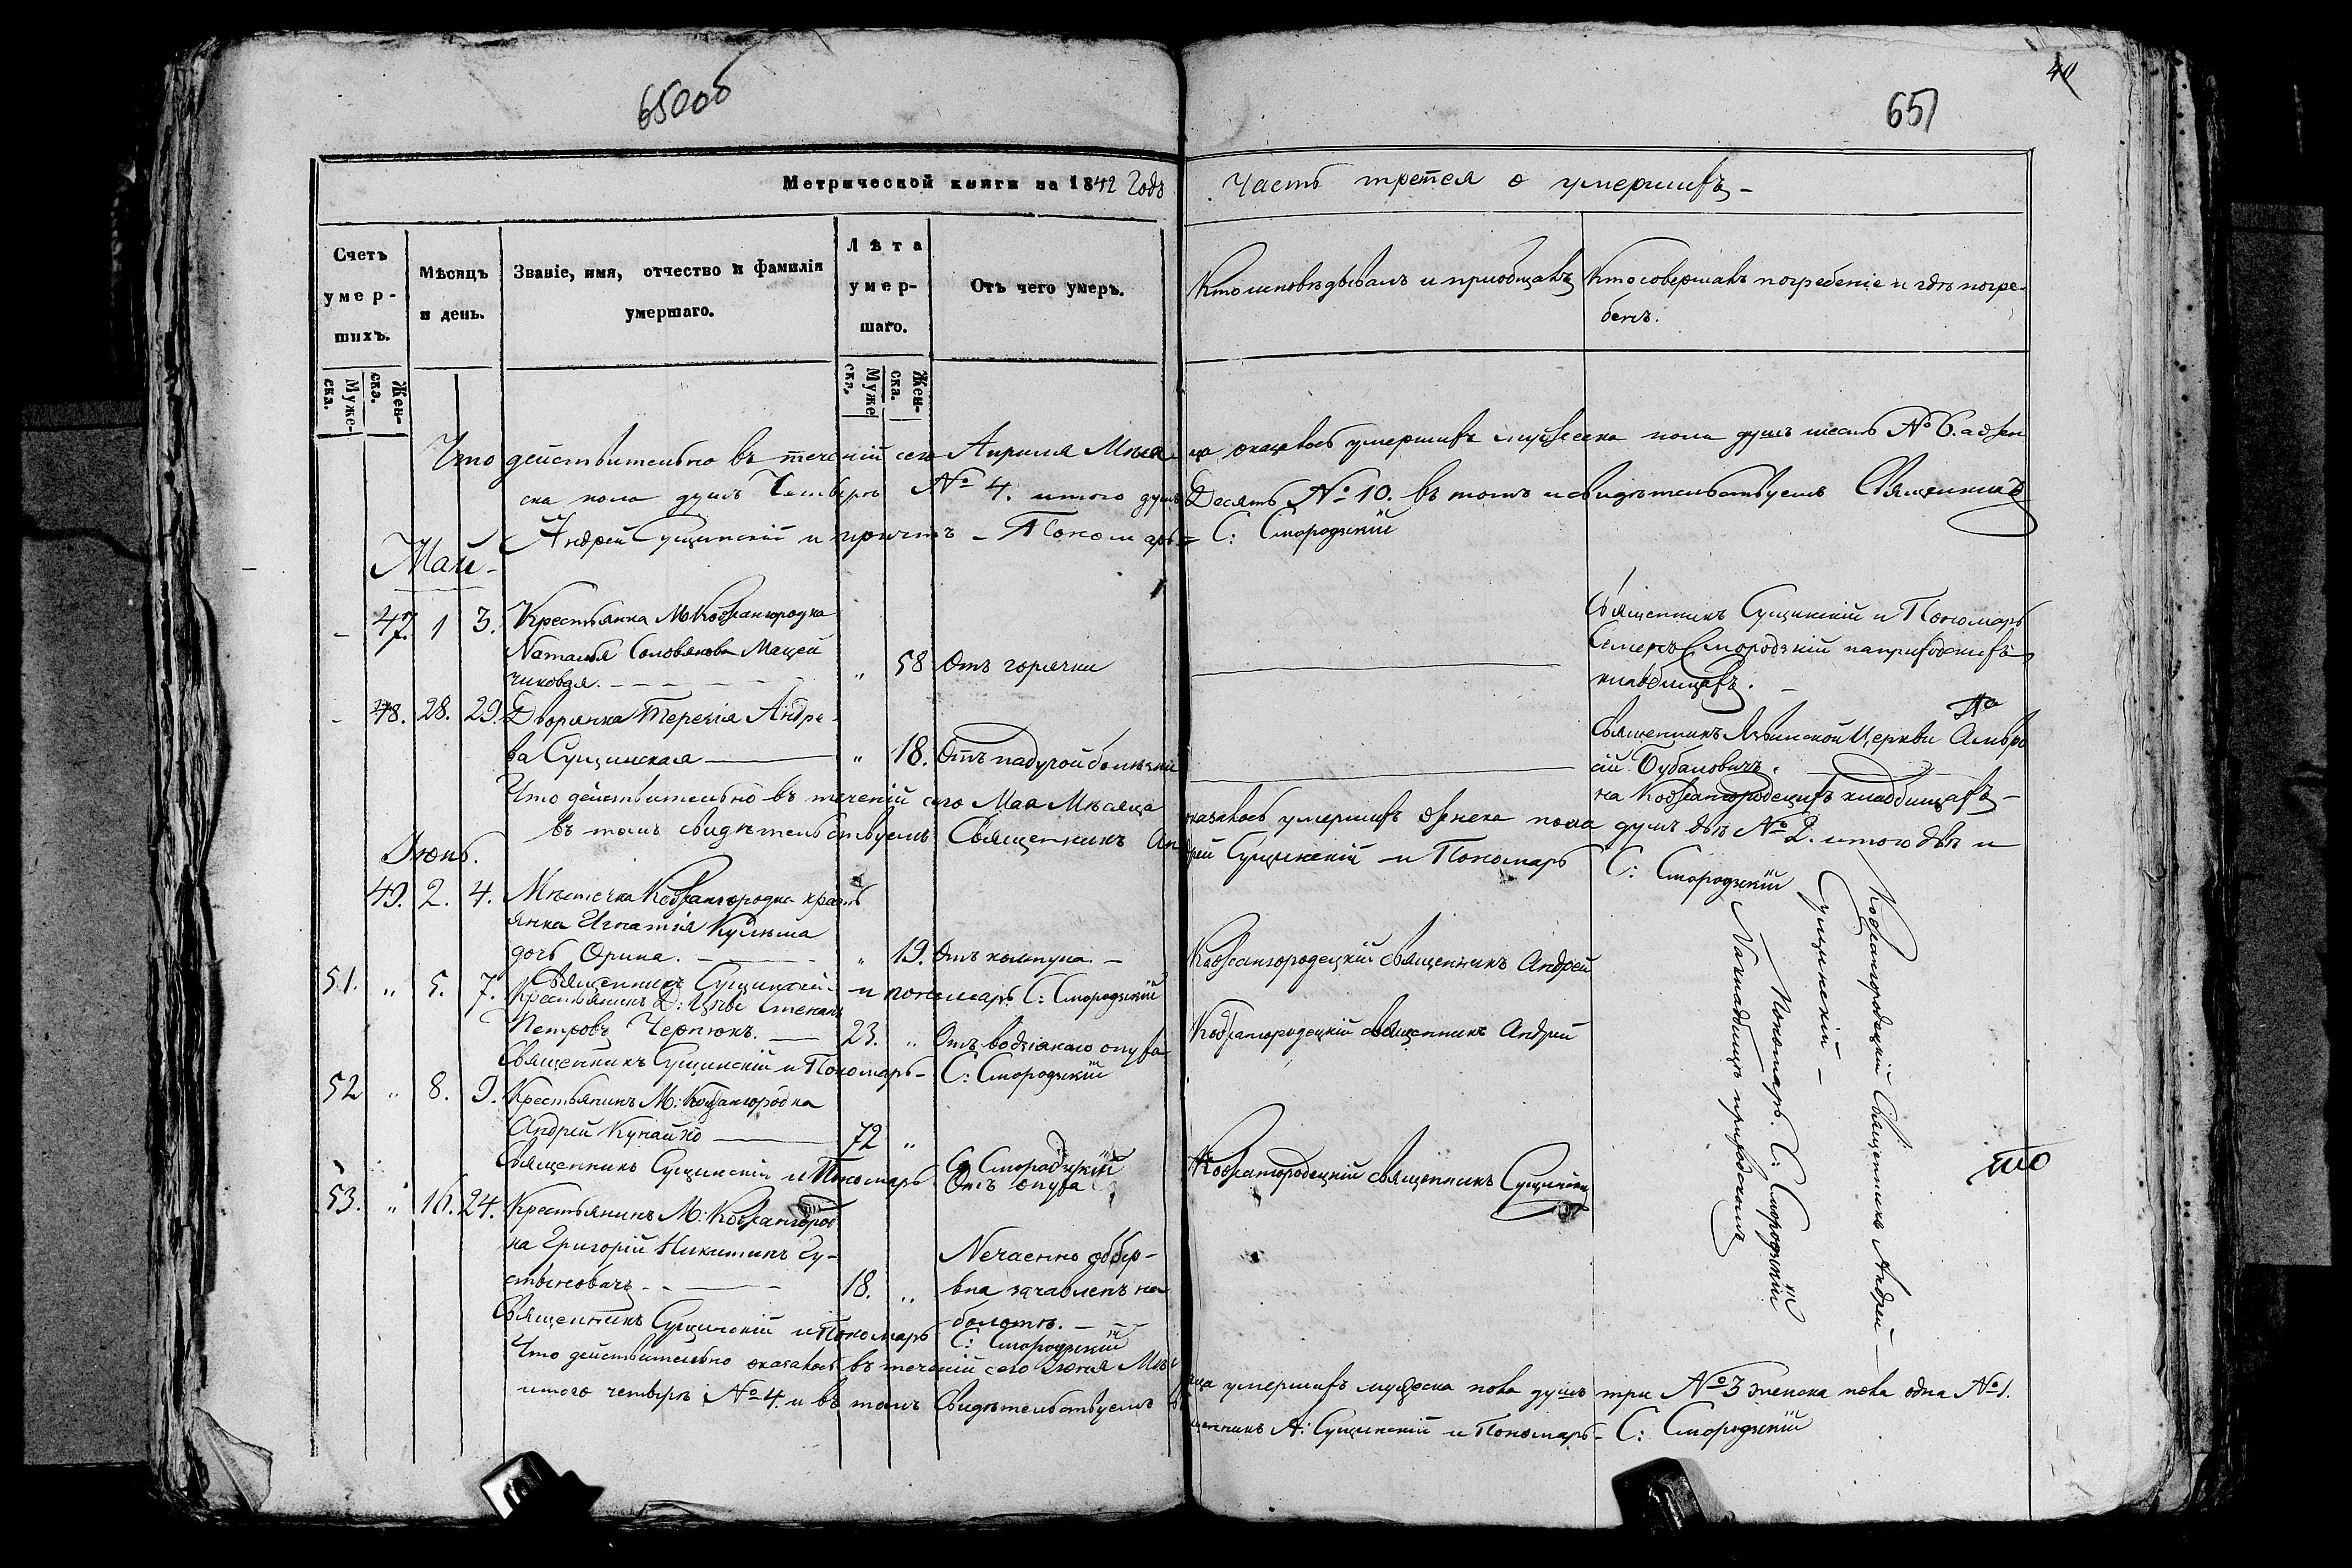 650об
40
651
Метрической книги на 1842 Годъ
Часть третея о умершихъ
Счетъ умер-шихъ.
Мѣсяцъ и день.
Званіе, имя, отчество и фамилія умершаго.
Лѣта умер-шаго.
Отъ чего умеръ.
Кто исповѣдывалъ и приобщалъ
Кто совершалъ погребеніе и гдѣ погре-
бенъ.
Муже-ска.
Жен-ска.
Муже ска.
Жен-ска.
Что действительно въ теченіи сего Априля Мѣся-ца оказалось умершихъ мужеска пола душъ шесть № 6. а жен
ска пола душъ Четыре № 4. итого душъ Десять № 10. въ томъ и свидѣтельствуемъ Священникъ
Андрей Сущинскій и причтъ - Пономарь = С: Смородскій
Маій -
- 47. 1 3. Крестьянка М. Кожангородка
Наталья Соловякова Мацей
чиковая. - - - „ 58 Отъ горячки
Священникъ Сущинскій и Пономарь
Семенъ Смородскій на приходскихъ
кладбищахъ. -
- 48. 28. 29. Дворянка Терезія Андре-
ва Сущинская - „ 18. Отъ падучой болѣзни
Священникъ Язвинской Церкви Амвро
сій Бубановичъ.
на Кожангородецкихъ кладбищахъ -
Что действительно въ теченіи сего Мая Мѣсяца оказалось умершихъ женска пола душъ двѣ № 2. итого двѣ и
въ томъ свидѣтельствуемъ Священникъ Андрей Сущинскій и Пономарь С: Смородскій
Іюнь.
49. 2. 4. Мѣстечка Кожангородка крест
янка Игнатія Кулеша
дочь Орина. - „ 19. Отъ колтуна. -
Кожангородецкій священникъ Андрей
Священникъ Сущинскій и пономарь С: Смородскій
51. „ 5. 7. Крестьянинъ Д: Цны Степанъ
Петровъ Чернюкъ. - 23. „ Отъ водянаго опуха
Кожангородецкій священникъ Андрей
Священникъ Сущинскій и Пономарь - С: Смородскій
52 „ 8. 9. Крестьянинъ М: Кожангородка
Андрей Кунайко - 72 „
Отъ опуха
Кожангородецкій священникъ Сущинскій
Священникъ Сущинскій и Пономарь С: Смородскій
53. „ 16. 24. Крестьянинъ М: Кожангород
ка Григорій Никитинъ Гу-
стыновичъ. - 18. „
Нечаенно
на
болотѣ. -
Священникъ Сущинскій и Пономарь С: Смородскій
Кожангородецкій Священникъ Андрей -
Сущинскій -
Пономарь. С: Смородскій
На кладбищѣ приходскомъ
Что действительно оказалось въ теченіи сего Іюня Мѣсяца умершихъ мужеска пола душъ три № 3 женска пола одна № 1.
итого четыре № 4. и въ томъ Свидѣтельствуемъ Священникъ А: Сущинскій и Пономарь - С: Смородскій